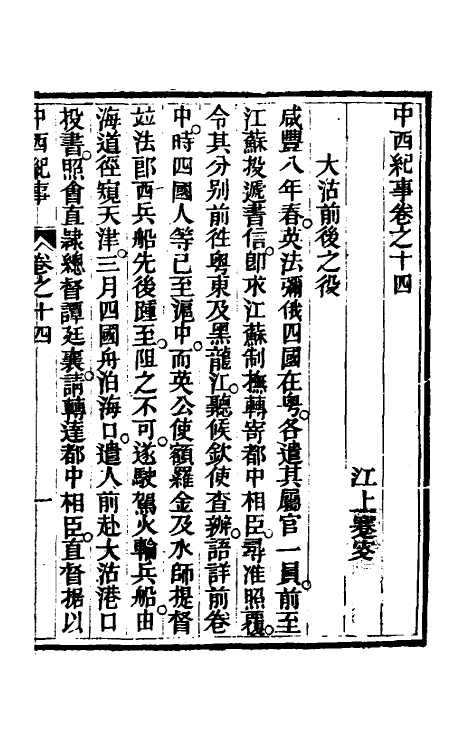 中西紀事卷之十四
江上蹇叟
大沽前後之役
咸豐八年春。英法彌俄四國在粵。各遣其屬官一員。前至
江蘇投遞書信。卽求江蘇制撫轉寄都中相臣。尋准照覆。
令其分别前徃粵東及黑龍江。聽候欽使查辦。語詳前卷
中。時四國人等已至滬中。而英公使額羅金及水師提督
竝法郎西兵船先後踵至。阻之不可。遂駛駕火輪兵船。由
海道徑窺天津。三月四國舟泊海口。遣人前赴大沽港口
投書。照會直隷總督譚廷襄。請轉達都中相臣。直督据以
中西紀事 卷之十四 一